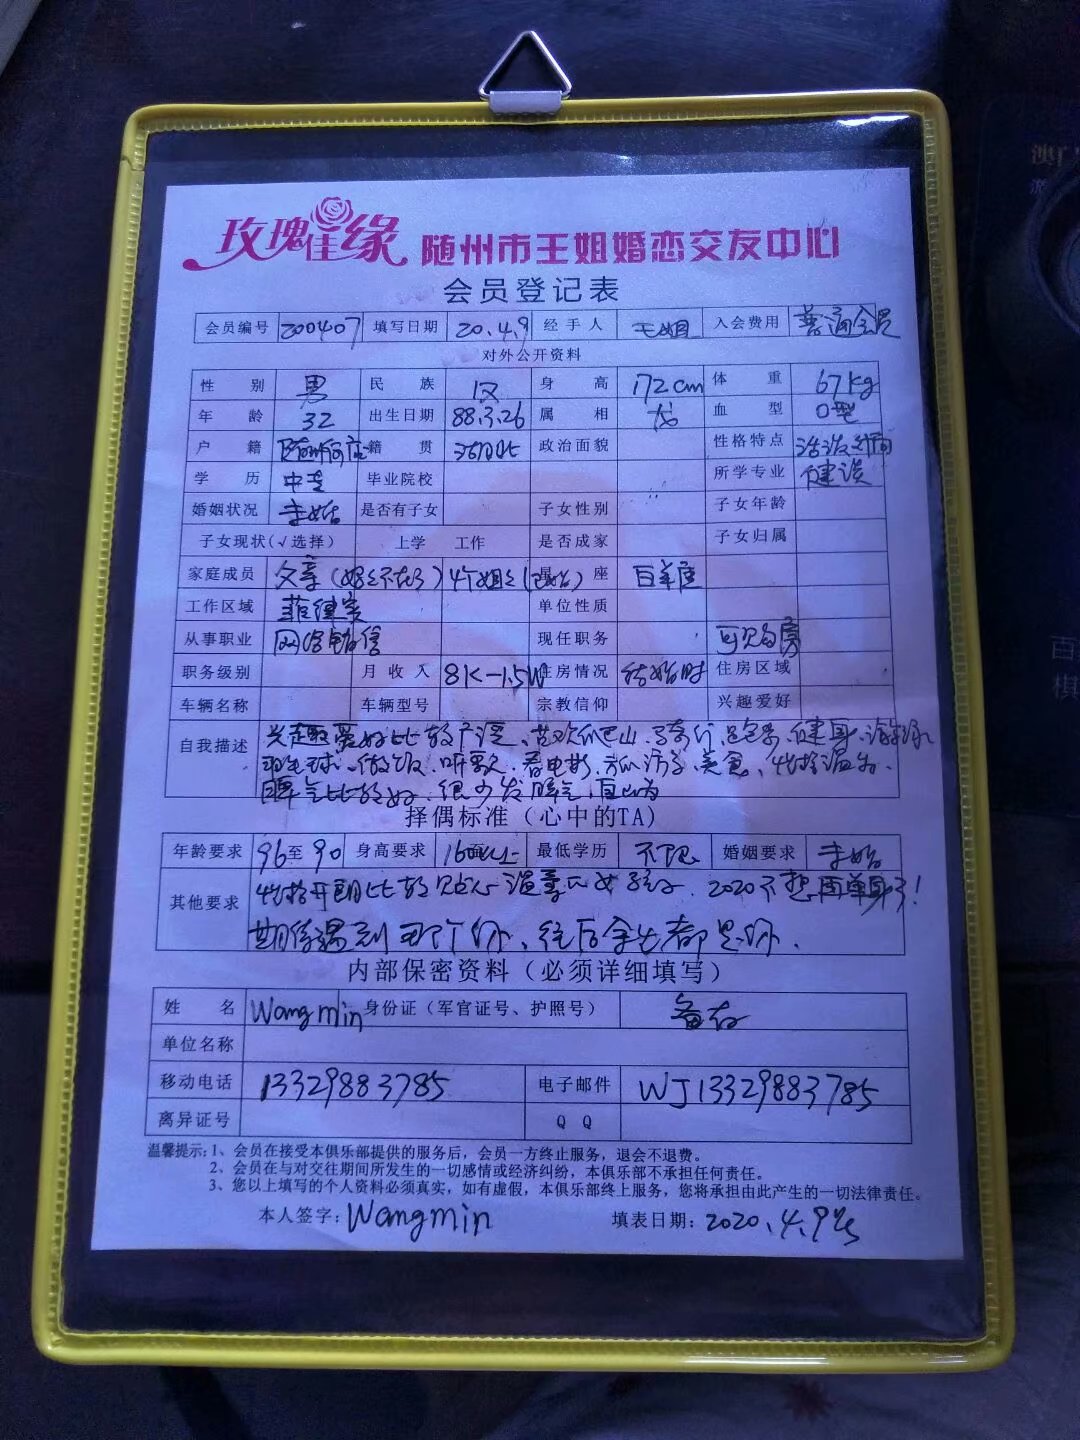 玫瑰佳缘 随州市王姐婚恋交友中心
会员登记表
会员编号 200407 填写日期 20.4.9 经手人 王姐 入会费用 普通会员
对外公开资料
性别 男 民族 汉 身高 172cm 体重 67kg
年龄 32 出生日期 88.3.26 属相 龙 血型 O型
户籍 随州何店 籍贯 湖北 政治面貌 性格特点 活泼
学历 中专 毕业院校 所学专业 健谈
婚姻状况 未婚 是否有子女 子女性别 子女年龄
子女现状(√选择) 上学 工作 是否成家 子女归属
家庭成员 父亲(妈妈不在了)4个姐姐(已婚) 星座 白羊座
工作区域 菲律宾 单位性质
从事职业 网络电信 现任职务 可见购房
职务级别 月收入 8K-1.5W 住房情况 结婚时 住房区域
车辆名称 车辆型号 宗教信仰 兴趣爱好
自我描述 兴趣爱好比较广泛、喜欢爬山、骑行、健身、游泳
羽毛球、做饭、听歌、看电影、美食、性格温和、
脾气比较好、很少发脾气
择偶标准(心中的TA)
年龄要求 96至90 身高要求 160以上 最低学历 不限 婚姻要求 未婚
其他要求 性格开朗比较贴心温柔的女孩子、2020不想再单身了!
期待遇到那个你、往后余生都是你、
内部保密资料(必须详细填写)
姓名 Wangmin 身份证(军官证号、护照号) 备存
单位名称
移动电话 13329883785 电子邮件 WJ13329883785
离异证号 QQ
温馨提示:1、会员在接受本俱乐部提供的服务后,会员一方终止服务,退会不退费。
2、会员在与对交往期间所发生的一切感情或经济纠纷,本俱乐部不承担任何责任。
3、您以上填写的个人资料必须真实,如有虚假,本俱乐部终上服务,您将承担由此产生的一切法律责任。
本人签字:Wangmin 填表日期:2020.4.9号